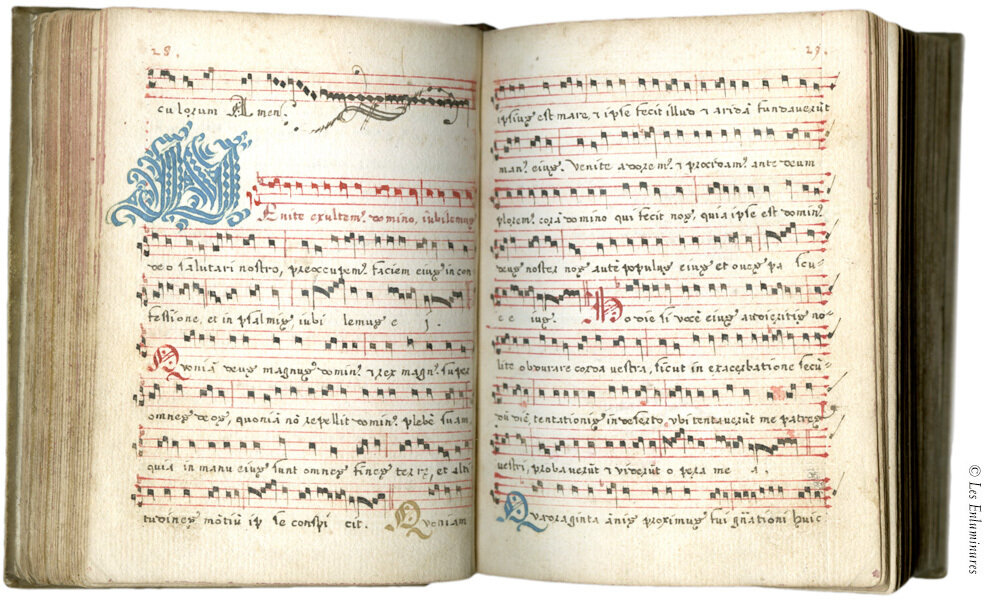 28.
culorum Amen.
Venite exultem⁹ domino, iubilemus
deo salutari nostro, preoccupem⁹ faciem eius in con
fessione, et in psalmis iubi lemus e j.
Quoniā deus magnus domin⁹ & rex magn⁹ super
omnes deos, quoniā nō repellit domin⁹ plebē suam,
quia in manu eius sunt omnes fines terre, et alti
tudines mōtiū ip se conspi cit. Quoniam
29.
ipsius est mare, & ipse fecit illud & aridā fundaverūt
man⁹ eius. Venite adorem⁹ & procidam⁹ ante deum
plorem⁹ corā domino qui fecit nos, quia ipse est domin⁹
deus noster nos autē populus eius et oves pa scu-
e e ius. Hodie si vocē eius audieritis no-
lite obdurare corda vestra, sicut in exacerbatione secū-
dū diē tentationis in deserto, ubi tentaverūt me patres
vestri, probaverūt & viderūt o pera me a.
Quadraginta ānis proximus fui gn̄ationi huic
© Les Enluminures